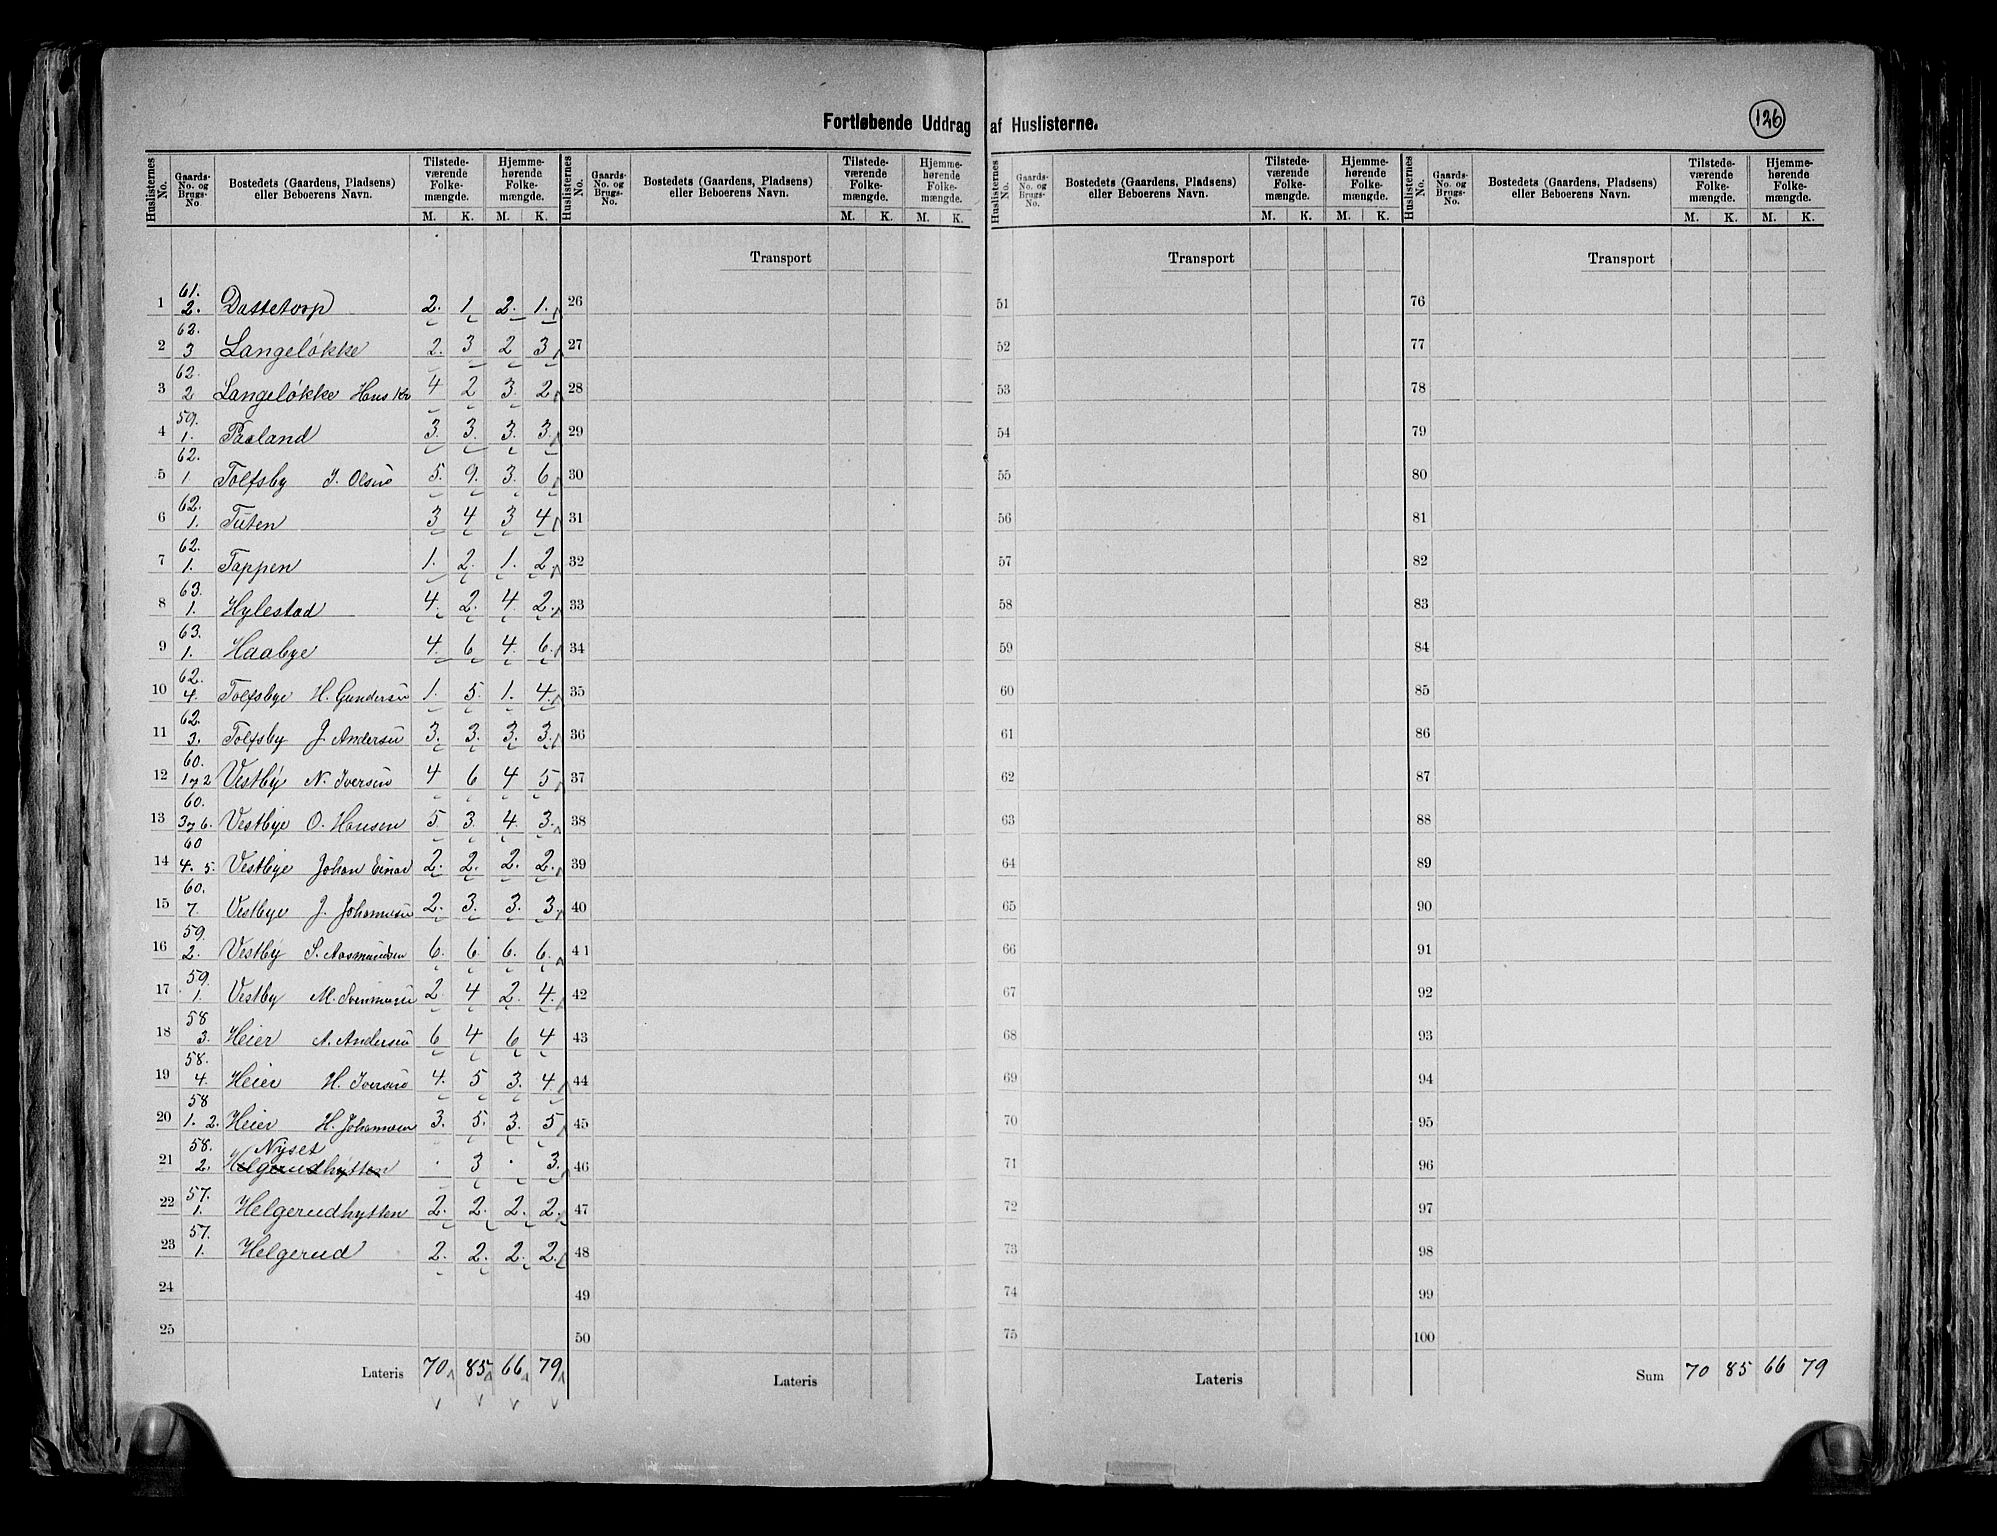 Fortløbende Uddrag af Huslisterne.
126
Huslisternes No. | Gaards-No. og Brugs-No | Bostedets (Gaardens, Pladsens) eller Beboerens Navn. | Tilstedeværende Folkemængde. M. K. | Hjemmehørende Folkemængde. M. K.
1 | 61. 2. | Dassetorp | 2. | 1 | 2. | 1.
2 | 62. 3 | Langeløkke | 2. | 3 | 2 | 3
3 | 62. 2 | Langeløkke Hans Kr | 4 | 2 | 3. | 2
4 | 59. 1. | Paaland | 3. | 3. | 3. | 3.
5 | 62. 1 | Tolfsby J. Olsen | 5. | 9. | 3. | 6
6 | 62. 1. | Tuten | 3 | 4 | 3 | 4
7 | 62. 1. | Tappen | 1. | 2. | 1. | 2
8 | 63. 1. | Hylestad | 4. | 2. | 4. | 2.
9 | 63. 1. | Haabye | 4. | 6 | 4. | 6.
10 | 62. 4. | Tolfsbye H. Gundersen | 1. | 5. | 1. | 4.
11 | 62. 3. | Tolfsby J. Andersen | 3. | 3. | 3. | 3.
12 | 60. 1 og 2 | Vestby N. Iversen | 4 | 6 | 4 | 5
13 | 60. 3 og 6. | Vestbye O. Hansen | 5 | 3. | 4. | 3.
14 | 60 4. 5. | Vestbye Johan Einar | 2. | 2. | 2. | 2.
15 | 60. 7. | Vestbye J. Johannesen | 2. | 3. | 3. | 3.
16 | 59. 2. | Vestby S. Aasmundsen | 6. | 6. | 6. | 6.
17 | 59. 1. | Vestby M. | 2 | 4 | 2. | 4.
18 | 58 3. | Heier A. Andersen | 6 | 4 | 6 | 4
19 | 58. 4. | Heier H. Iversen | 4. | 5 | 3. | 4
20 | 58 1. 2. | Heier H. Johannesen | 3. | 5. | 3. | 5
21 | 58. 2. | Nyset Helgerudhytten | . | 3 | . | 3.
22 | 57. 1. | Helgerudhytten | 2. | 2. | 2. | 2.
23 | 57. 1. | Helgerud | 2. | 2. | 2. | 2.
24
25
Lateris 70 85 66 79
Huslisternes No. | Gaards-No. og Brugs-No. | Bostedets (Gaardens, Pladsens) eller Beboerens Navn. | Tilstedeværende Folkemængde. M. K. | Hjemmehørende Folkemængde. M. K.
Transport
26
27
28
29
30
31
32
33
34
35
36
37
38
39
40
41
42
43
44
45
46
47
48
49
50
Lateris
Huslisternes No. | Gaards-No. og Brugs-No. | Bostedets (Gaardens, Pladsens) eller Beboerens Navn. | Tilstedeværende Folkemængde. M. K. | Hjemmehørende Folkemængde. M. K.
Transport
51
52
53
54
55
56
57
58
59
60
61
62
63
64
65
66
67
68
69
70
71
72
73
74
75
Lateris
Huslisternes No. | Gaards-No. og Brugs-No. | Bostedets (Gaardens, Pladsens) eller Beboerens Navn. | Tilstedeværende Folkemængde. M. K. | Hjemmehørende Folkemængde. M. K.
Transport
76
77
78
79
80
81
82
83
84
85
86
87
88
89
90
91
92
93
94
95
96
97
98
99
100
Sum 70 85 66 79